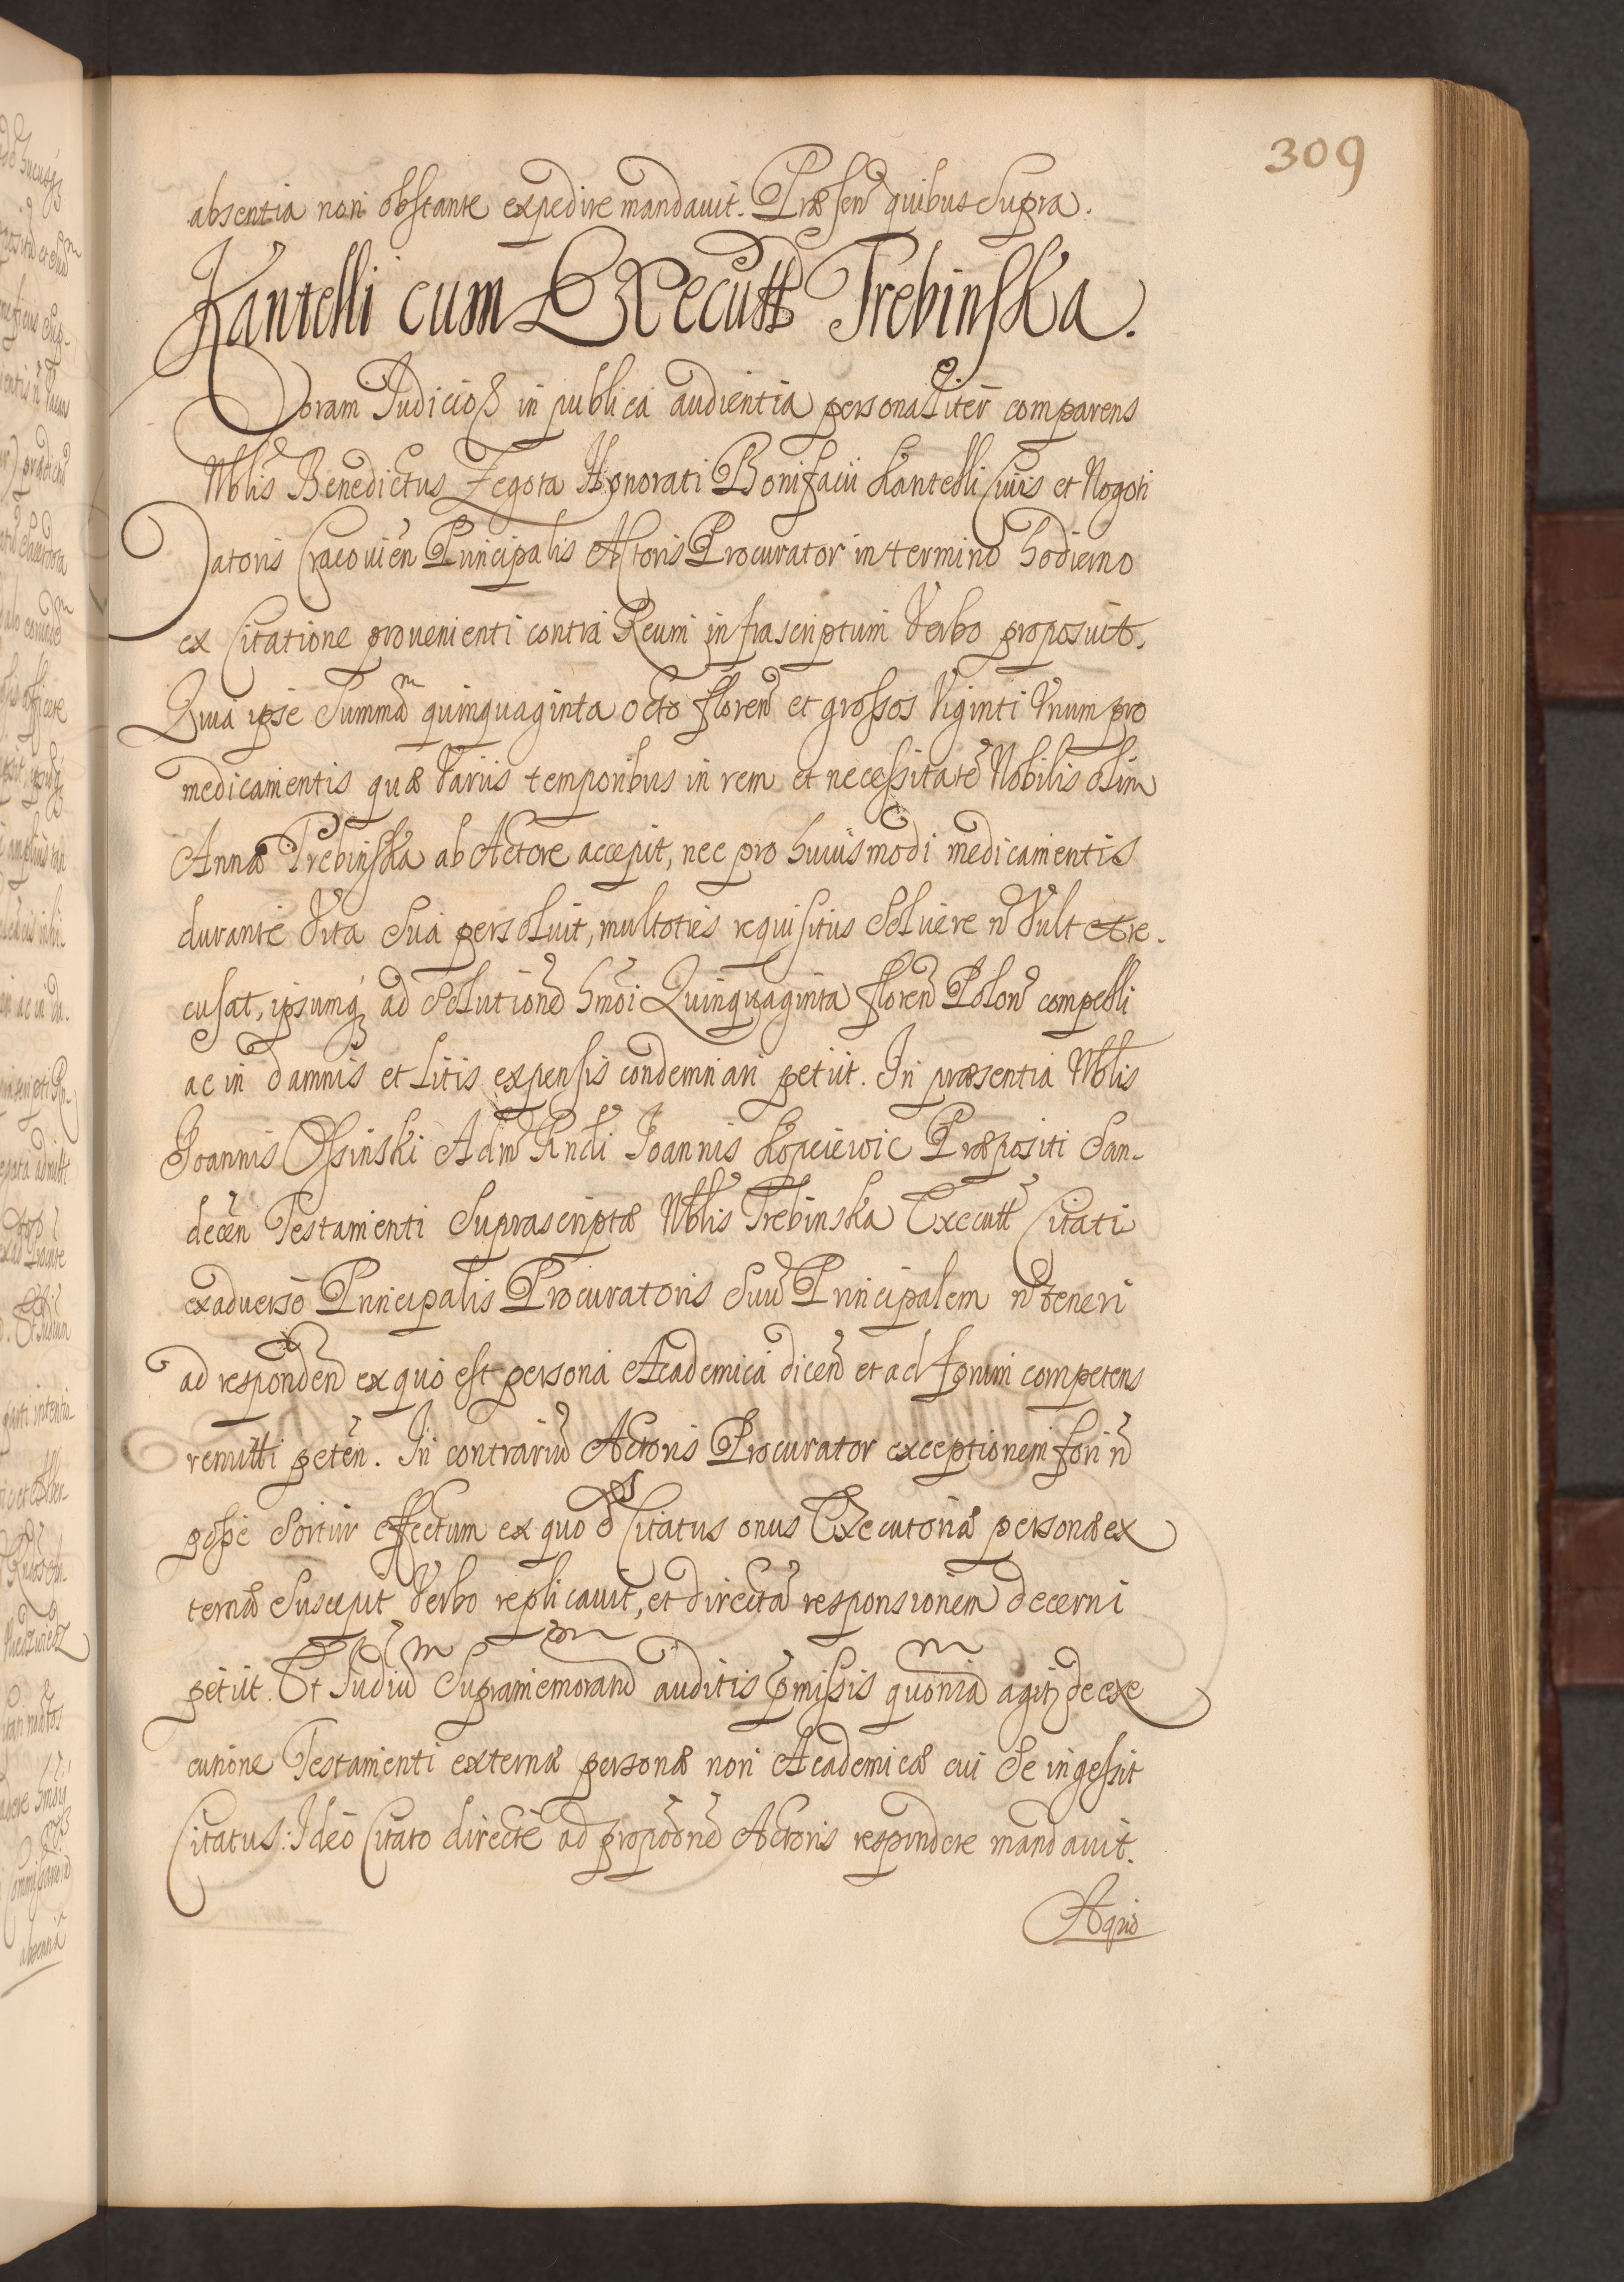 309
absentia non obstante expedire mandauit. Præsen quibus Supra.
Kantelli cum Executt Trebinska.
Coram Judicio in publica audientia personaliter comparens
Nblis Benedictus Zegota Honorati Bonifacii Kantelli Ciuis et Nogoti
atoris Cracouien Principalis Actoris Procurator in termino hodierno
ex Citatione prouenienti contra Reum infrascriptum Verbo proposuit,
Quia ipse Summa quinquaginta octo floren et grossos Viginti Vnum pro
medicamentis quæ Variis temporibus in rem et necessitate Nobilis olim
Annæ Trebinska ab Actore accepit, nec pro huiusmodi medicamentis
durante Vita Sua persoluit, multoties requisitus Soluere n Vult et re-
cusat, ipsumq ad Solutione hmoi Quinquaginta floren Polon compelli
ac in damnis et Litis expensis condemnari petiit. In præsentia Nblis
Joannis Ossinski Adm Rndi Joannis Kopciewic Præpositi San-
decen Testamenti Suprascriptæ Nblis Trebinska Executt Citati
exaduerso Principalis Procuratoris Suu Principalem n teneri
ad responden ex quo est persona Academica dicen et ad forum competens
remitti peten. In contrariu Actoris Procurator exceptionem fori n
posse Sortiri effectum ex quo Citatus onus Executoriæ personæ ex
ternæ Suscepit Verbo replicauit, et directa responsionem decerni
petiit. Et Judiu Supramemoratu auditis pmissis quonia agitz de exe
cutione Testamenti externæ personæ non Academicæ cui Se ingessit
Citatus: Ideo Citato directe ad propoone Actoris respondere mandauit.
A quo